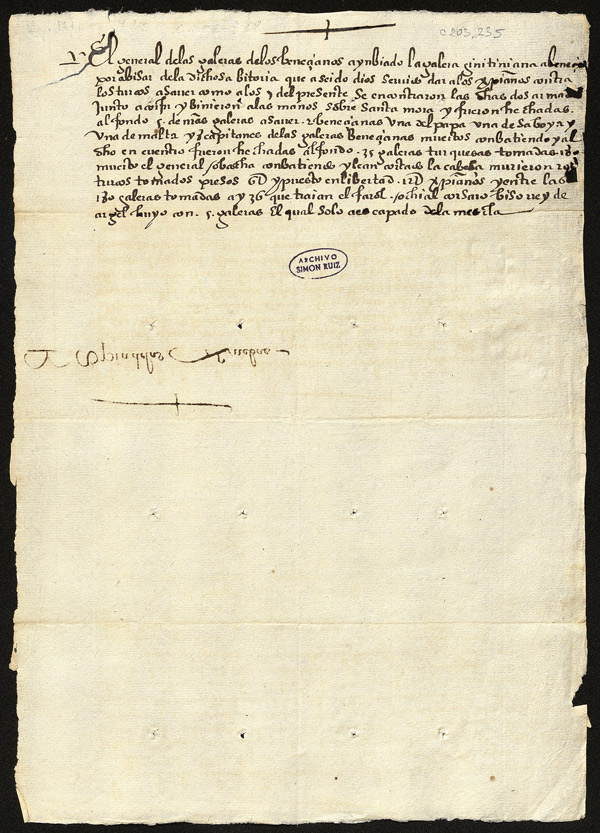 c 203, 235
El general delas galeras delos beneçianos aynbiado la galera çinitiniana a beneçia
por abisar dela dichosa bitoria que aseido dios servido dar alos xpianos contra
los turcos asaver como alos 7 del presente se encontraron las dhas dos armadas
Junto a corfu y binieron alas manos sobre Santa mora y fueron hechadas
al fondo 5. de mas galeras asaver. 2 beneçianas una del papa una de saboya y
una de malta y 7 capitanes delas galeras Beneçianas muertos conbatiendo y al
dho en cuentro fueron hechadas al fondo. 35 galeras turquesas tomadas 180
muerto el general sobasha conbatiendo y le an cortado la cabesa murieron
turcos tomados presos y puesto en libertad xpianos y entre las
180 galeras tomadas ay 36 que traian el farol. ochial corsaro biso rey de
argel huyo con. 5. galeras el qual solo a escapado dela mescla
ARCHIVO
SIMON RUIZ
Copia delas Nuebas